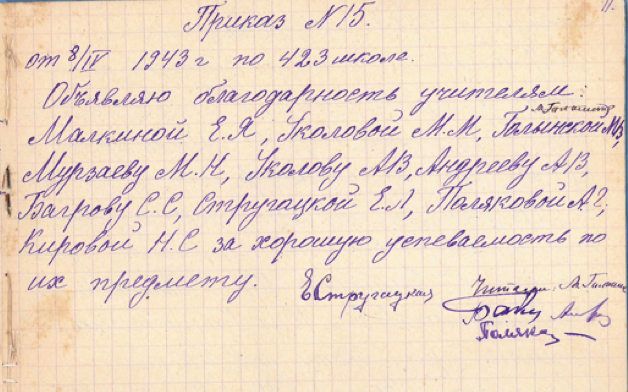 Приказ N 15.
от 8/IV 1943 г по 423 школе.
Объявляю благодарность учителям:
Малкиной Е.Я, Уколовой М.М, Голынской М.В,
Мурзаеву М.Н, Уколову А.В, Андрееву А.В,
Багрову С.С, Стругацкой Е.Л, Поляковой А.Г,
Кировой Н.С за хорошую успеваемость по
их предмету.
ЕСтругацкая
Читали: